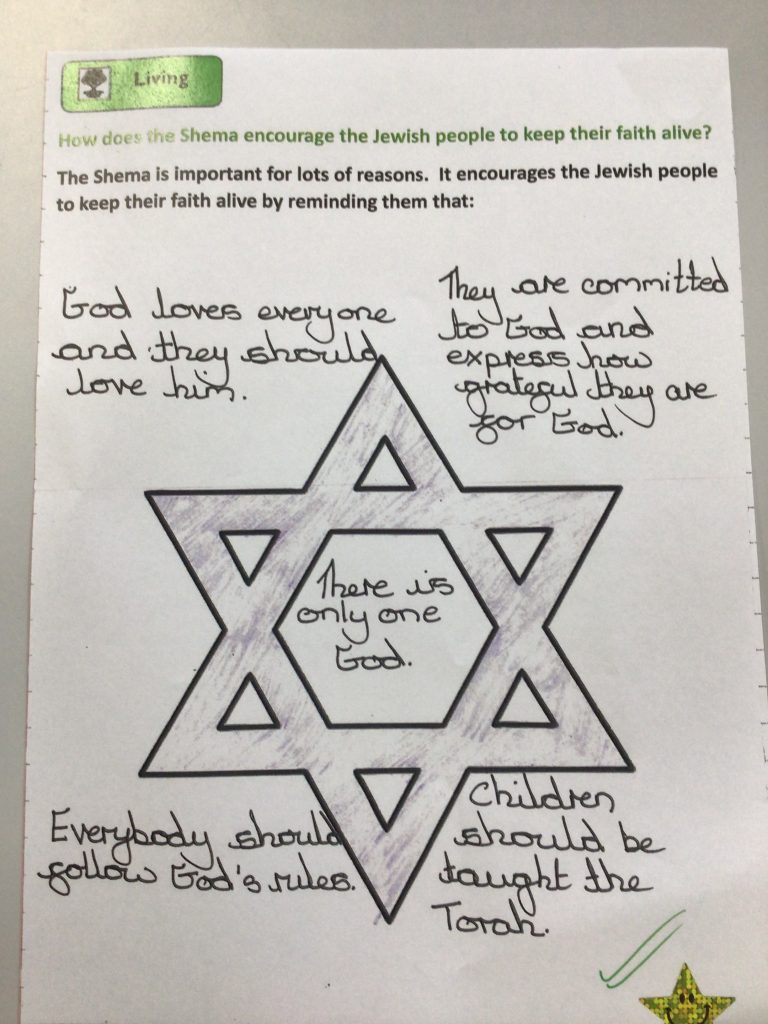 Living
How does the Shema encourage the Jewish people to keep their faith alive?
The Shema is important for lots of reasons. It encourages the Jewish people
to keep their faith alive by reminding them that:
God loves everyone
and they should
love him.
They are committed
to God and
express how
grateful they are
for God.
There is
only one
God.
Everybody should
follow God's rules.
Children
should be
taught the
Torah.